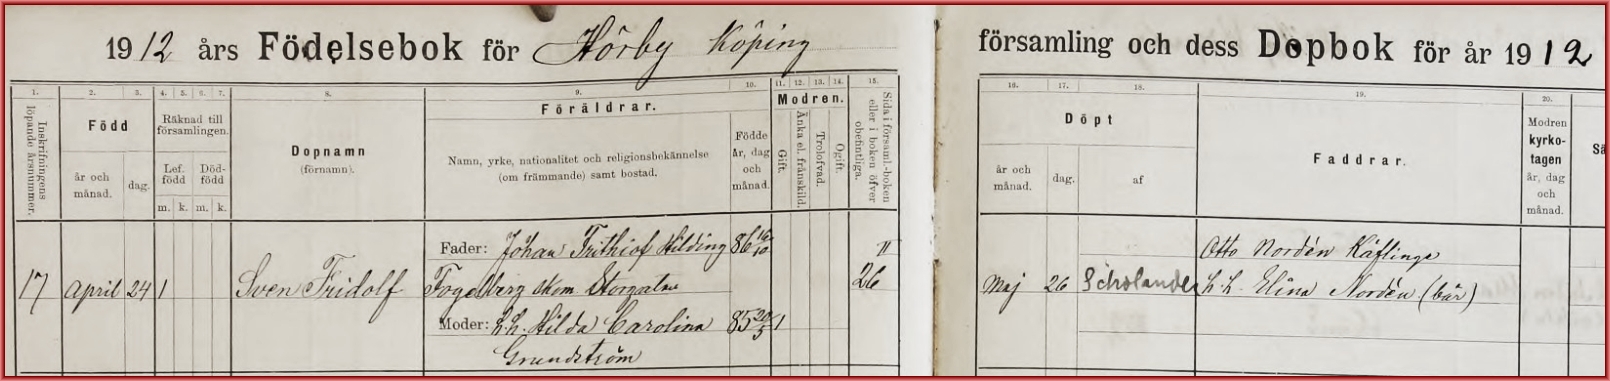 1912 års Födelsebok för Hörby Köping
församling och dess Dopbok för år 1912
1. 2. 3. 4. 5. 6. 7. 8. 9. 10. 11. 12. 13. 14. 15.
16. 17. 18. 19. 20.
Inskrifningens löpande årsnummer.
Född
år och månad.
dag.
Räknad till församlingen.
Lef. född
Död-född
m. k. m. k.
Dopnamn
(förnamn).
Föräldrar.
Namn, yrke, nationalitet och religionsbekännelse
(om främmande) samt bostad.
Födde
år, dag
och
månad.
Modren.
Gift.
Änka el. frånskild.
Trolofvad.
Ogift.
Sida i församl.-boken
eller i boken öfver
obefintliga.
Döpt
år och
månad.
dag.
af
Faddrar.
Modren
kyrko-
tagen
år, dag
och
månad.
Sä
Fader: Johan Frithiof Hilding 86 16/10
17 April 24 1 Sven Fridolf Fogelberg skom Storgatan 26
Moder: h.h. Hilda Carolina 85 20/5 1
Grundström
Otto Nordén Käflinge
Maj 26 Scholander h.h. Elina Nordén (bär)